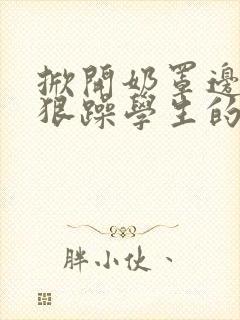 掀開奶罩邊
狠躁學生的
胖小伙、